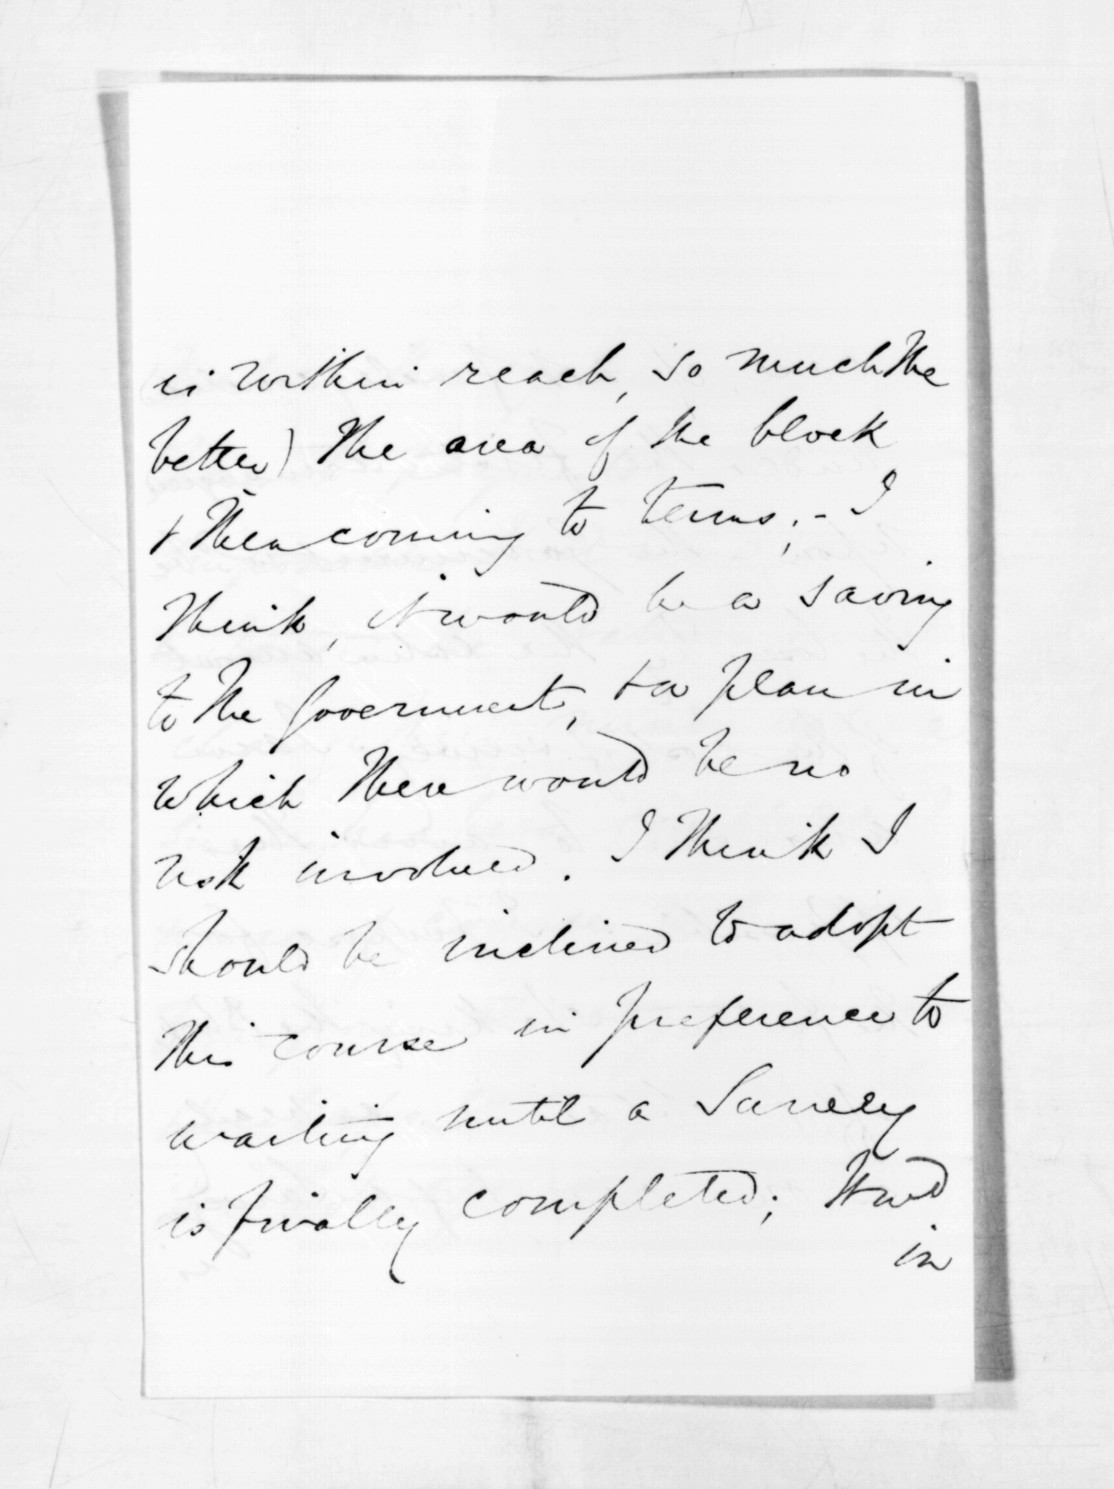 is within reach, so much the
better) the area of the block
& then coming to terms; - I
think, it would be a saving
to the Government, & a plan in
which there would be no
risk involved. I think I
should be inclined to adopt
this course in preference to
waiting until a Survey
is finally completed; &
in